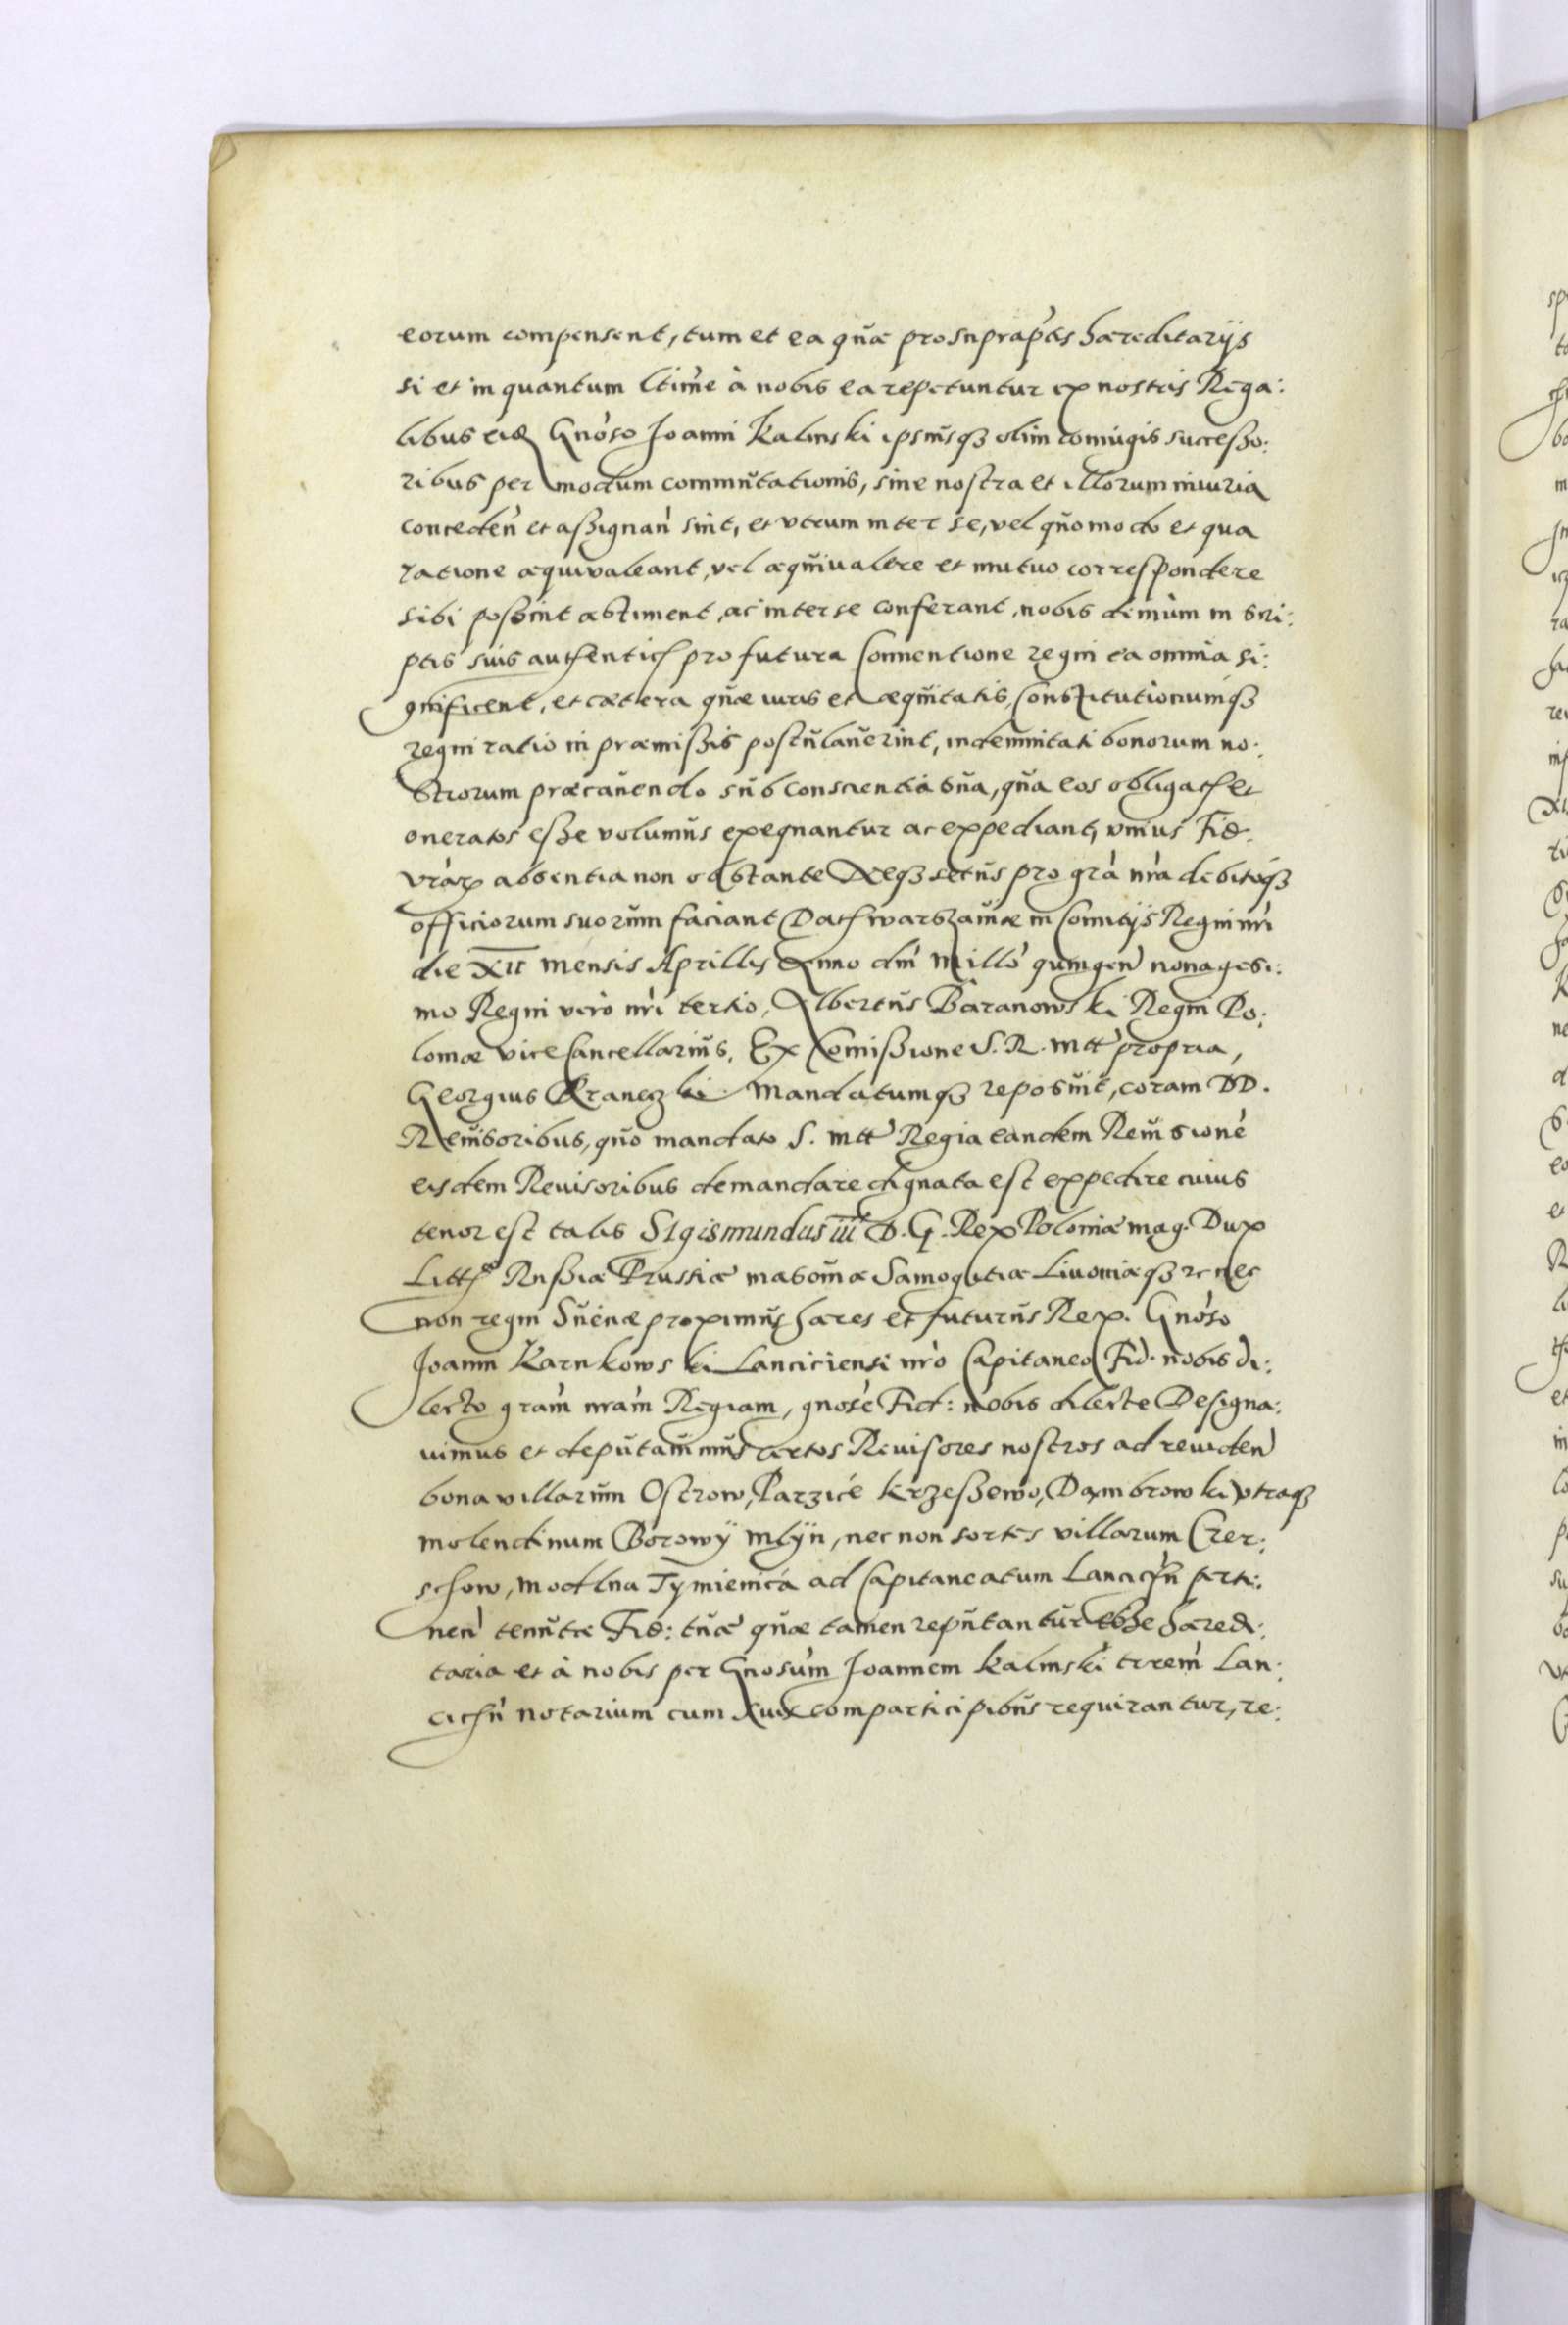 eorum compensent, tum et ea quæ pro supraptis hæreditarijs
si et in quantum ltime à nobis ea repetuntur ex nostris Rega:
libus eid Gnoso Joanni Kalinski ipsiusq3 olim coniugis successo:
ribus per modum commutationis, sine nostra et illorum iniuria
conceden et assignan sint, et vtrum inter se, vel quomodo et qua
ratione æquivaleant, vel æquiualere et mutuo correspondere
sibi possint æstiment, ac inter se conferant, nobis demùm in scri:
ptis suis authentich pro futura Conuentione regni ea omnia si:
gnificent, et cætera quæ iuris et æquitatis, Constitutionumq3
regni ratio in præmissis postulauerint, indemnitati bonorum no:
strorum præcauendo sub conscientia sua, qua eos obligatos et
oneratos esse volumus exequantur ac expediant, vnius Fid.
vrar absentia non obstante Neq3 secus pro gra nra debitoq3
officiorum suorum faciant Dat warszauiæ in Comitijs Regni nri
die XII mensis Aprilis Anno dni Millo quingen nonagesi:
mo Regni vero nri tertio, Albertus Baranowski Regni Po:
loniæ vice Cancellarius, Ex Comissione S. R. mtt propria,
Georgius mandatumq3 reposuit, coram DD.
Reuisoribus, quo mandato S. mtt Regia eandem Reuisione
eisdem Reuisoribus demandare dignata est expedire cuius
tenor est talis Sigismundus iii D. G. Rex Poloniæ mag. Dux
Litt Russiæ Prussiæ masouiæ Samogitiæ Liuoniæq3 zc nec
non regni Sueciæ proximus hæres et futurus Rex. Gnoso
Joanni Karnkowski Lanciciensi nro Capitaneo Fid. nobis di:
lecto gram nram Regiam, gnose Fid: nobis dilecte Designa:
uimus et deputauimus certos Reuisores nostros ad reuiden
bona villarum Ostrow, Parzice Krzessewo, Dambrowki vtraq3
molendinum Borowÿ mlÿn, nec non sortes villarum Czer:
schow, modlna Tymienica ad Capitaneatum Lancichn perti:
nen tenutæ Fid: tuæ quæ tamen reputantur esse hæredi:
taria et à nobis per Gnosum Joannem Kalinski trrem Lan:
cichn notarium cum suis comparticipibus requirantur, re: